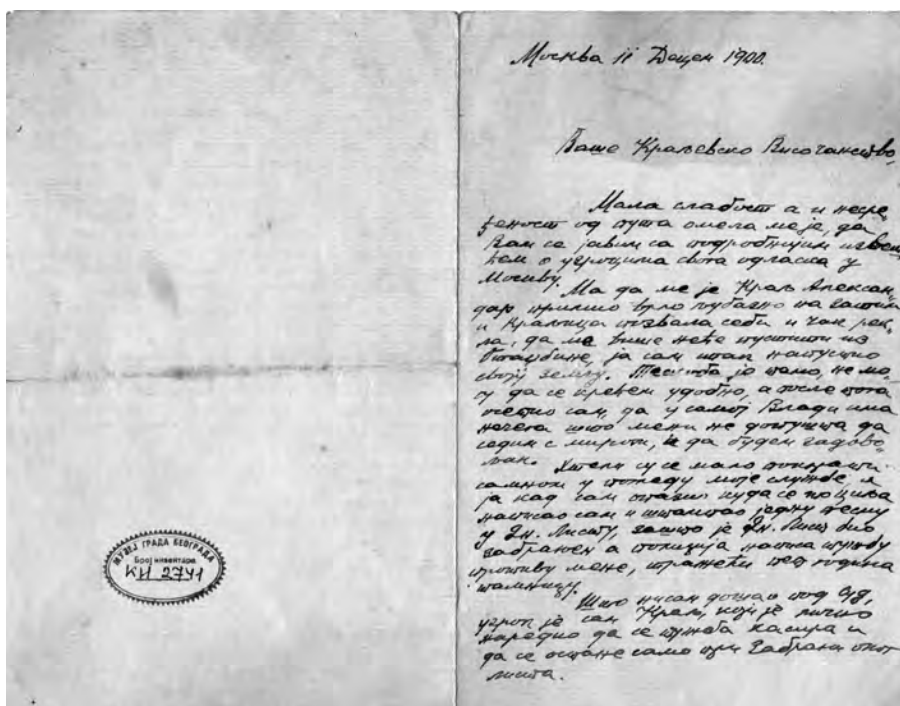 МУЗЕЈ ГРАДА БЕОГРАДА
Број инвентара
КИ 2741
Москва 11 Децем 1900.
Ваше Краљевско Височанство,
Мала слабост а и несре-
ђеност од пута омела ме је, да
Вам се јавим са подробнијим извеш-
ћем о узроцима свога одласка у
Москву.
Ма да ме је Краљ Алексан-
дар примио врло љубазно на
и Краљица позвала себи и чак рек-
ла, да ме више неће пустити из
отаџбине, ја сам ипак напустио
своју земљу. Тескоба је тамо, не мо-
гу да се кревем удобно, а после тога
осетио сам, да у самој Влади има
нечега што мени не допушта да
седим с миром, и да будем задово-
љан.
Хтели су се мало
самном у погледу моје службе, а
ја кад сам опазио куда се
написао сам и штампао једну песму
у Дн. Листу, зашто је Дн. Лист био
забрањен а полиција тужбу
противу мене, тражећи пет година
тамнице.
Што нисам дошао под суд,
узрок је сам Краљ, који је лично
наредио да се тужба касира и
да се остане само при забрани оног
листа.